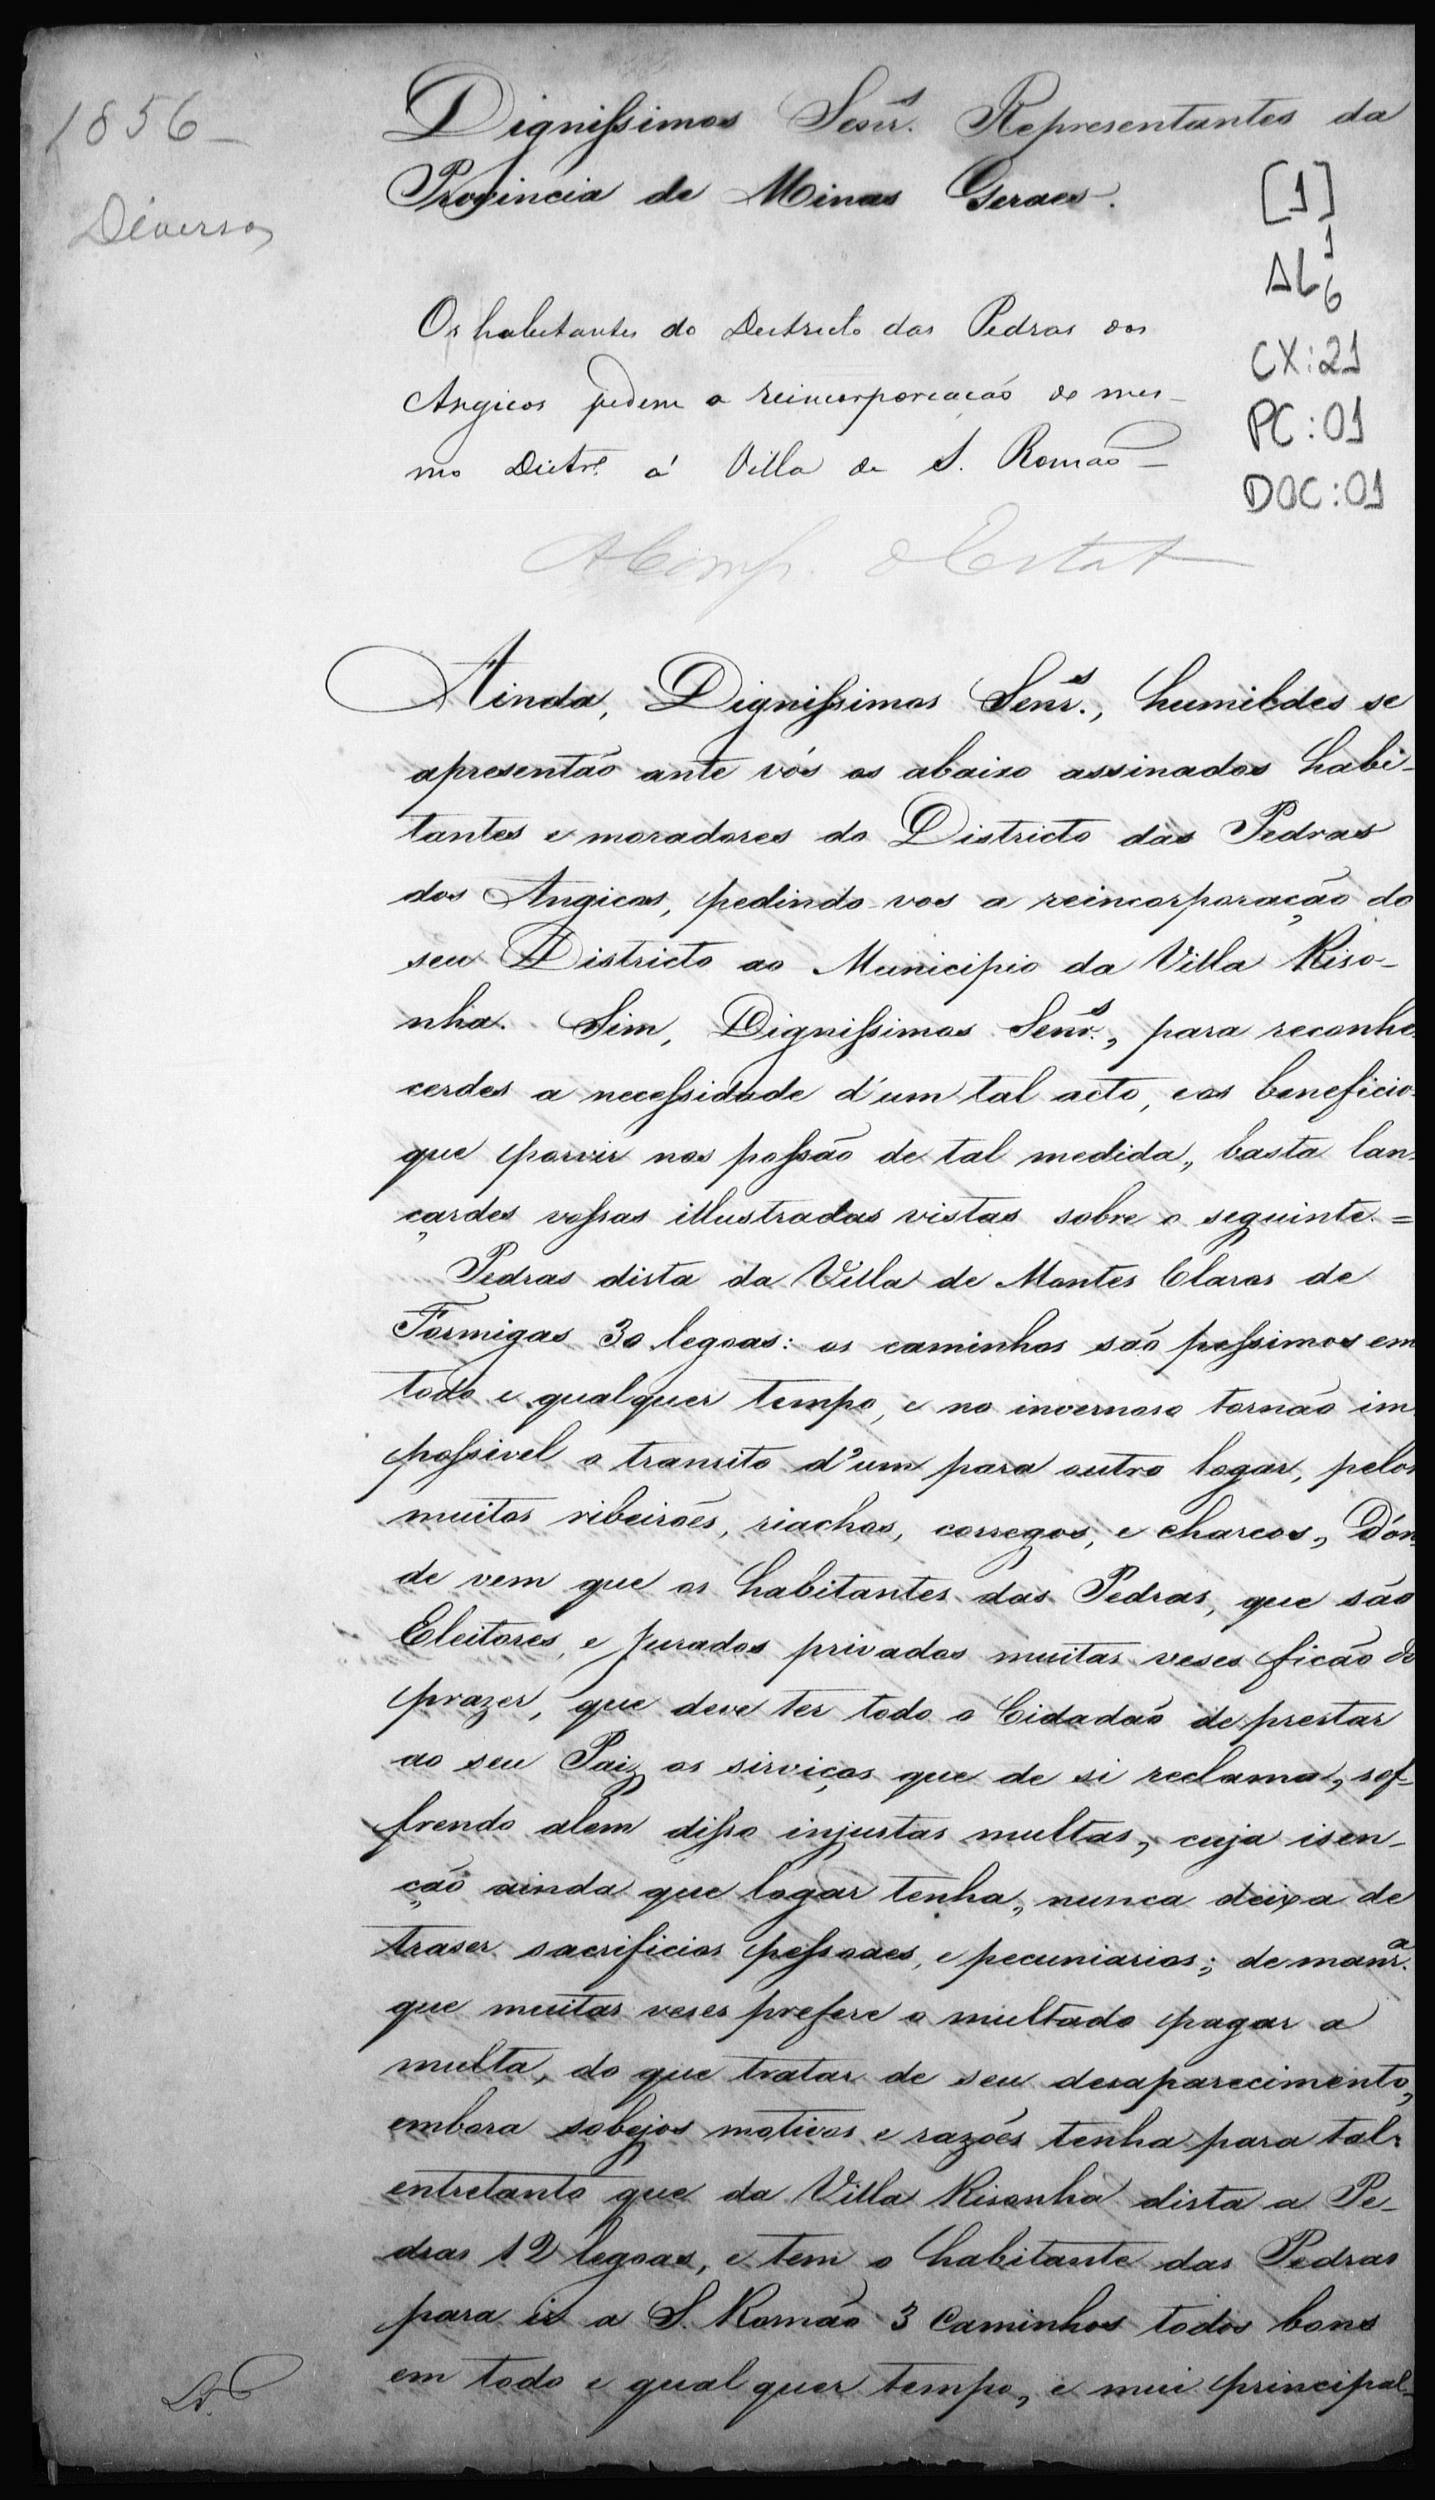 1856 –
Diversos
Dignissimos Senr.s Representantes da
Provincia de Minas Geraes.
[1]
AL 1
6
CX:21
PC:01
DOC:01
Os habitantes do Destricto das Pedras dos
Angicos pedem a reincorporação do mes-
mo Distr.o á Villa de S. Romão –
Ainda, Dignissimos Senr.s, humildes se
apresentão ante vós os abaixo assinados habi-
tantes e moradores do Districto das Pedras
dos Angicos, pedindo-vos a reincorporação do
seu Districto ao Municipio da Villa Riso-
nha. Sim, Dignissimos Senr.s, para reconhe
cerdes a necessidade d'um tal acto, e os beneficio
que porvir nos possão de tal medida, basta lan
çardes vossas illustradas vistas sobre o seguinte. =
Pedras dista da Villa de Montes Claros de
Formigas 30 legoas: os caminhos são pessimos em
todo e qualquer tempo, e no invernoso tornão im
possivel o transito d'um para outro logar, pelos
muitos ribeirões, riachos, corregos, e charcos, D'on
de vem que os habitantes das Pedras, que são
Eleitores, e Jurados privados muitas veses ficão do
prazer, que deve ter todo o Cidadão de prestar
ao seu Paiz os sirviços que de si reclama, sof-
frendo alem disso injustas multas, cuja isen-
ção ainda que logar tenha, nunca deixa de
traser sacrificios pessoaes, e pecuniarios; de manr.a
que muitas veses prefere o multado pagar a
multa, do que tratar de seu desaparecimento,
embora sobejos motivos e razões tenha para tal.
entretanto que da Villa Risonha dista a Pe-
dras 12 legoas, e tem o habitante das Pedras
para ir a S. Romão 3 Caminhos todos bons
em todo e qualquer tempo, e mui principal-